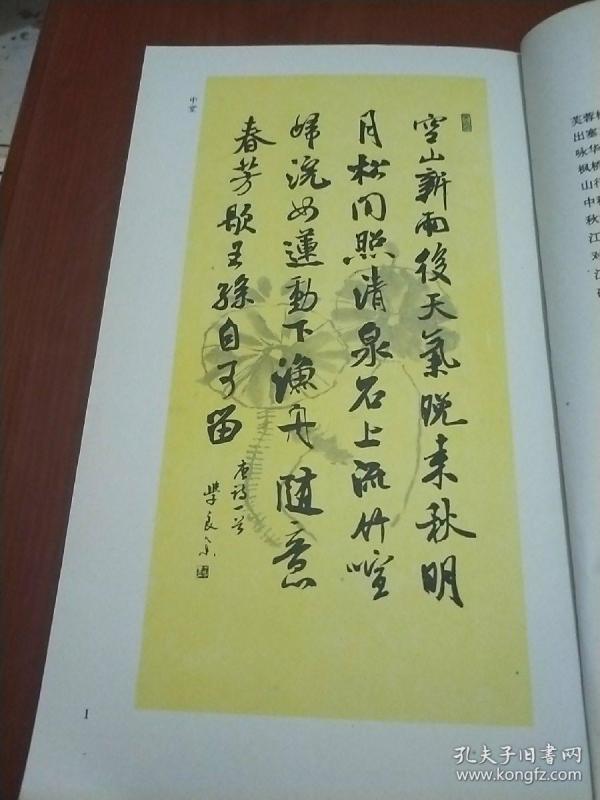 中堂
空山新雨後天氣晚来秋明
月松间照清泉石上流竹喧
歸浣女蓮動下漁舟随意
春芳歇王孫自可留
唐诗一首
1
芙蓉
出塞
咏华
枫桥
山行
中秋
秋
江
对
孔夫子旧书网
www.kongfz.com